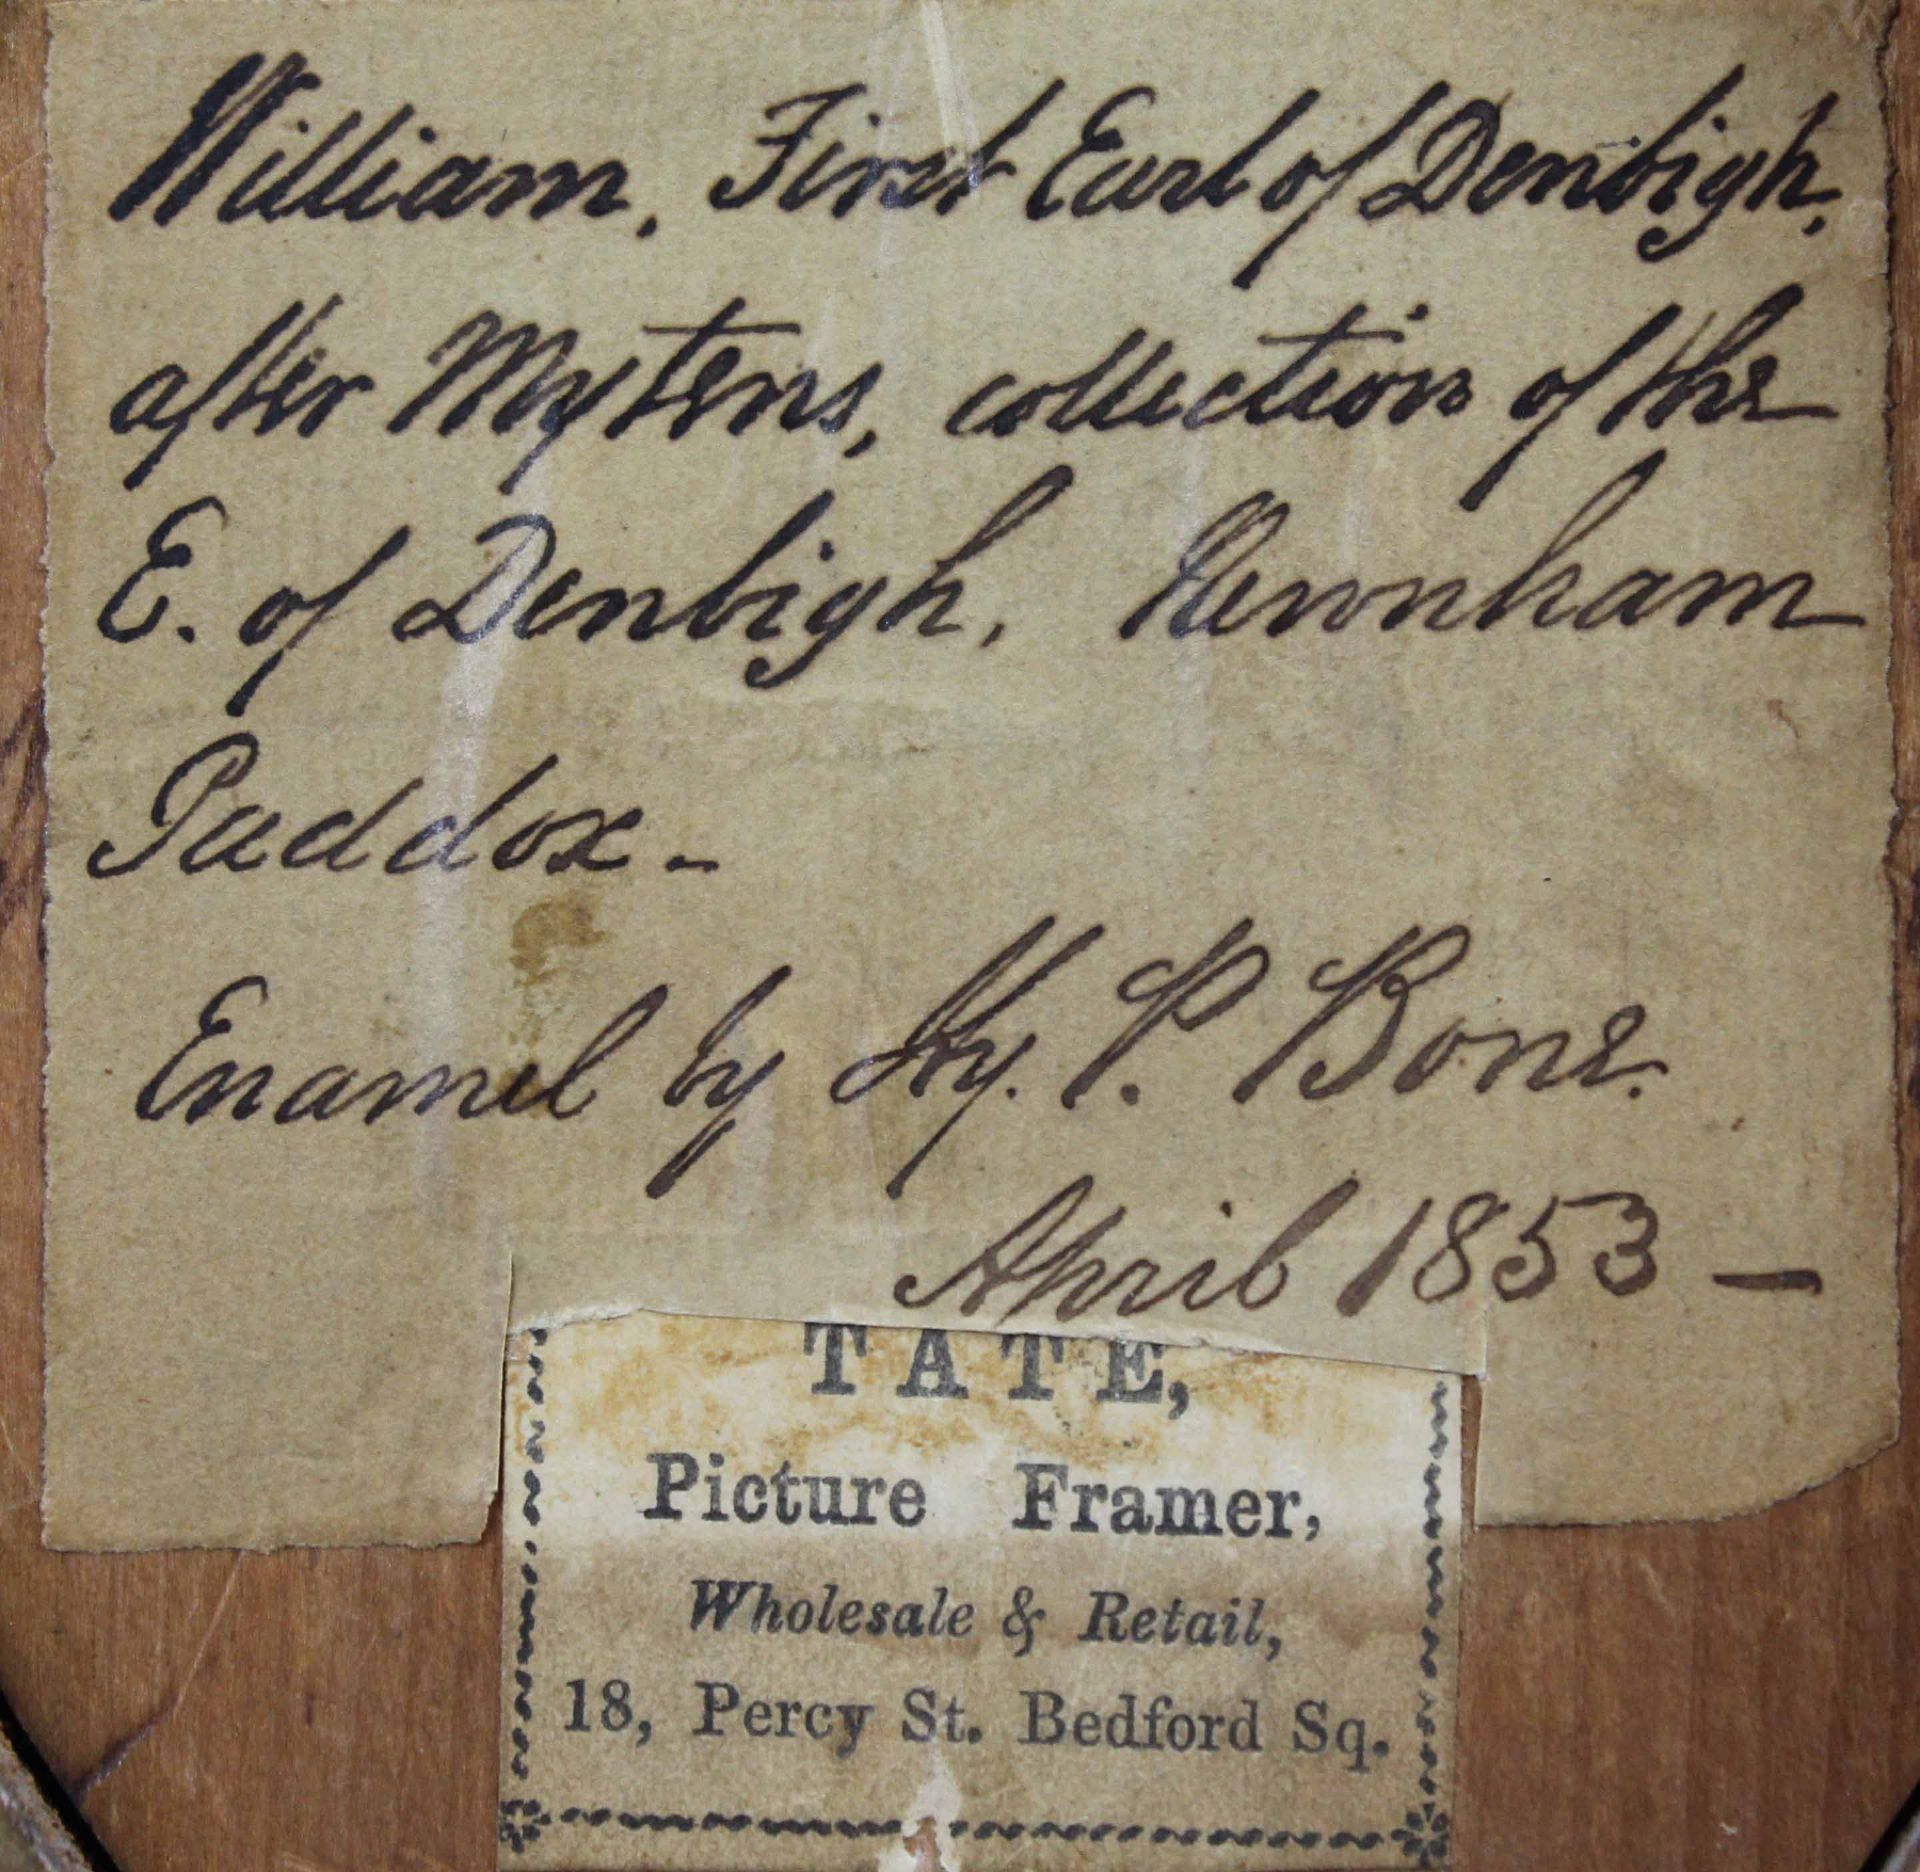 William, First Earl of Denbigh,
after Mytens, collection of the
E. of Denbigh, Newnham
Paddox -
Enamel by Hy. P. Bone.
April 1853 —
TATE,
Picture Framer,
Wholesale & Retail,
18, Percy St. Bedford Sq.